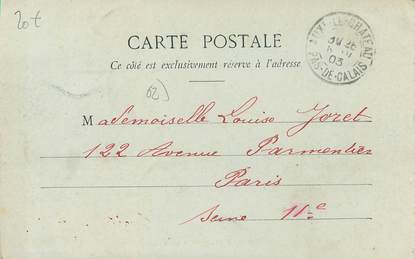 20€
CARTE POSTALE
Ce côté est exclusivement réservé à l'adresse
AUXI-LE-CHATEAU
03
PAS-DE-CALAIS
62
Mademoiselle Louise Joret
122 Avenue Parmentier
Paris
Seine 11e